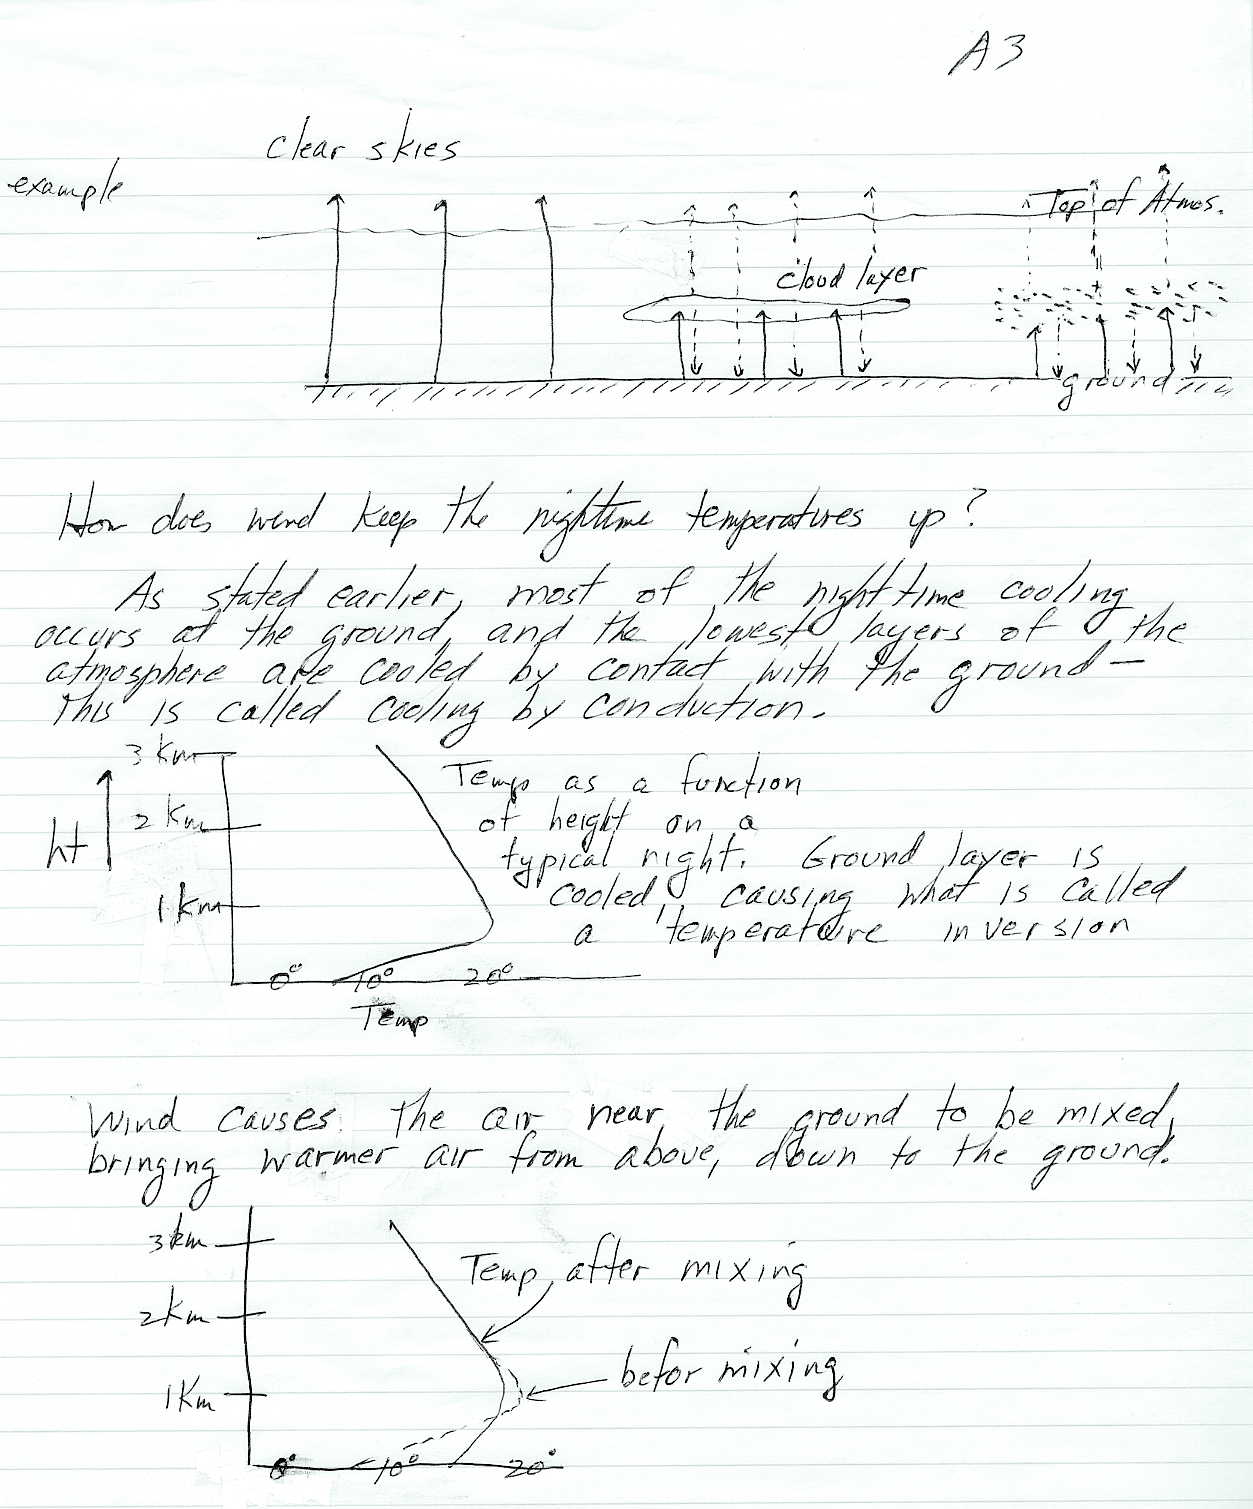 A3
clear skies
example
Top of Atmos.
cloud layer
ground
How does wind keep the nighttime temperatures up?
As stated earlier, most of the nighttime cooling
occurs at the ground, and the lowest layers of the
atmosphere are cooled by contact with the ground —
This is called cooling by conduction.
3 Km
2 Km
1 km
ht
Temp as a function
of height on a
typical night. Ground layer is
cooled, causing what is called
a 'temperature inversion
0° 10° 20°
Temp
Wind causes the air near the ground to be mixed,
bringing warmer air from above, down to the ground.
3 km
2 km
1 Km
Temp after mixing
befor mixing
0° 10° 20°